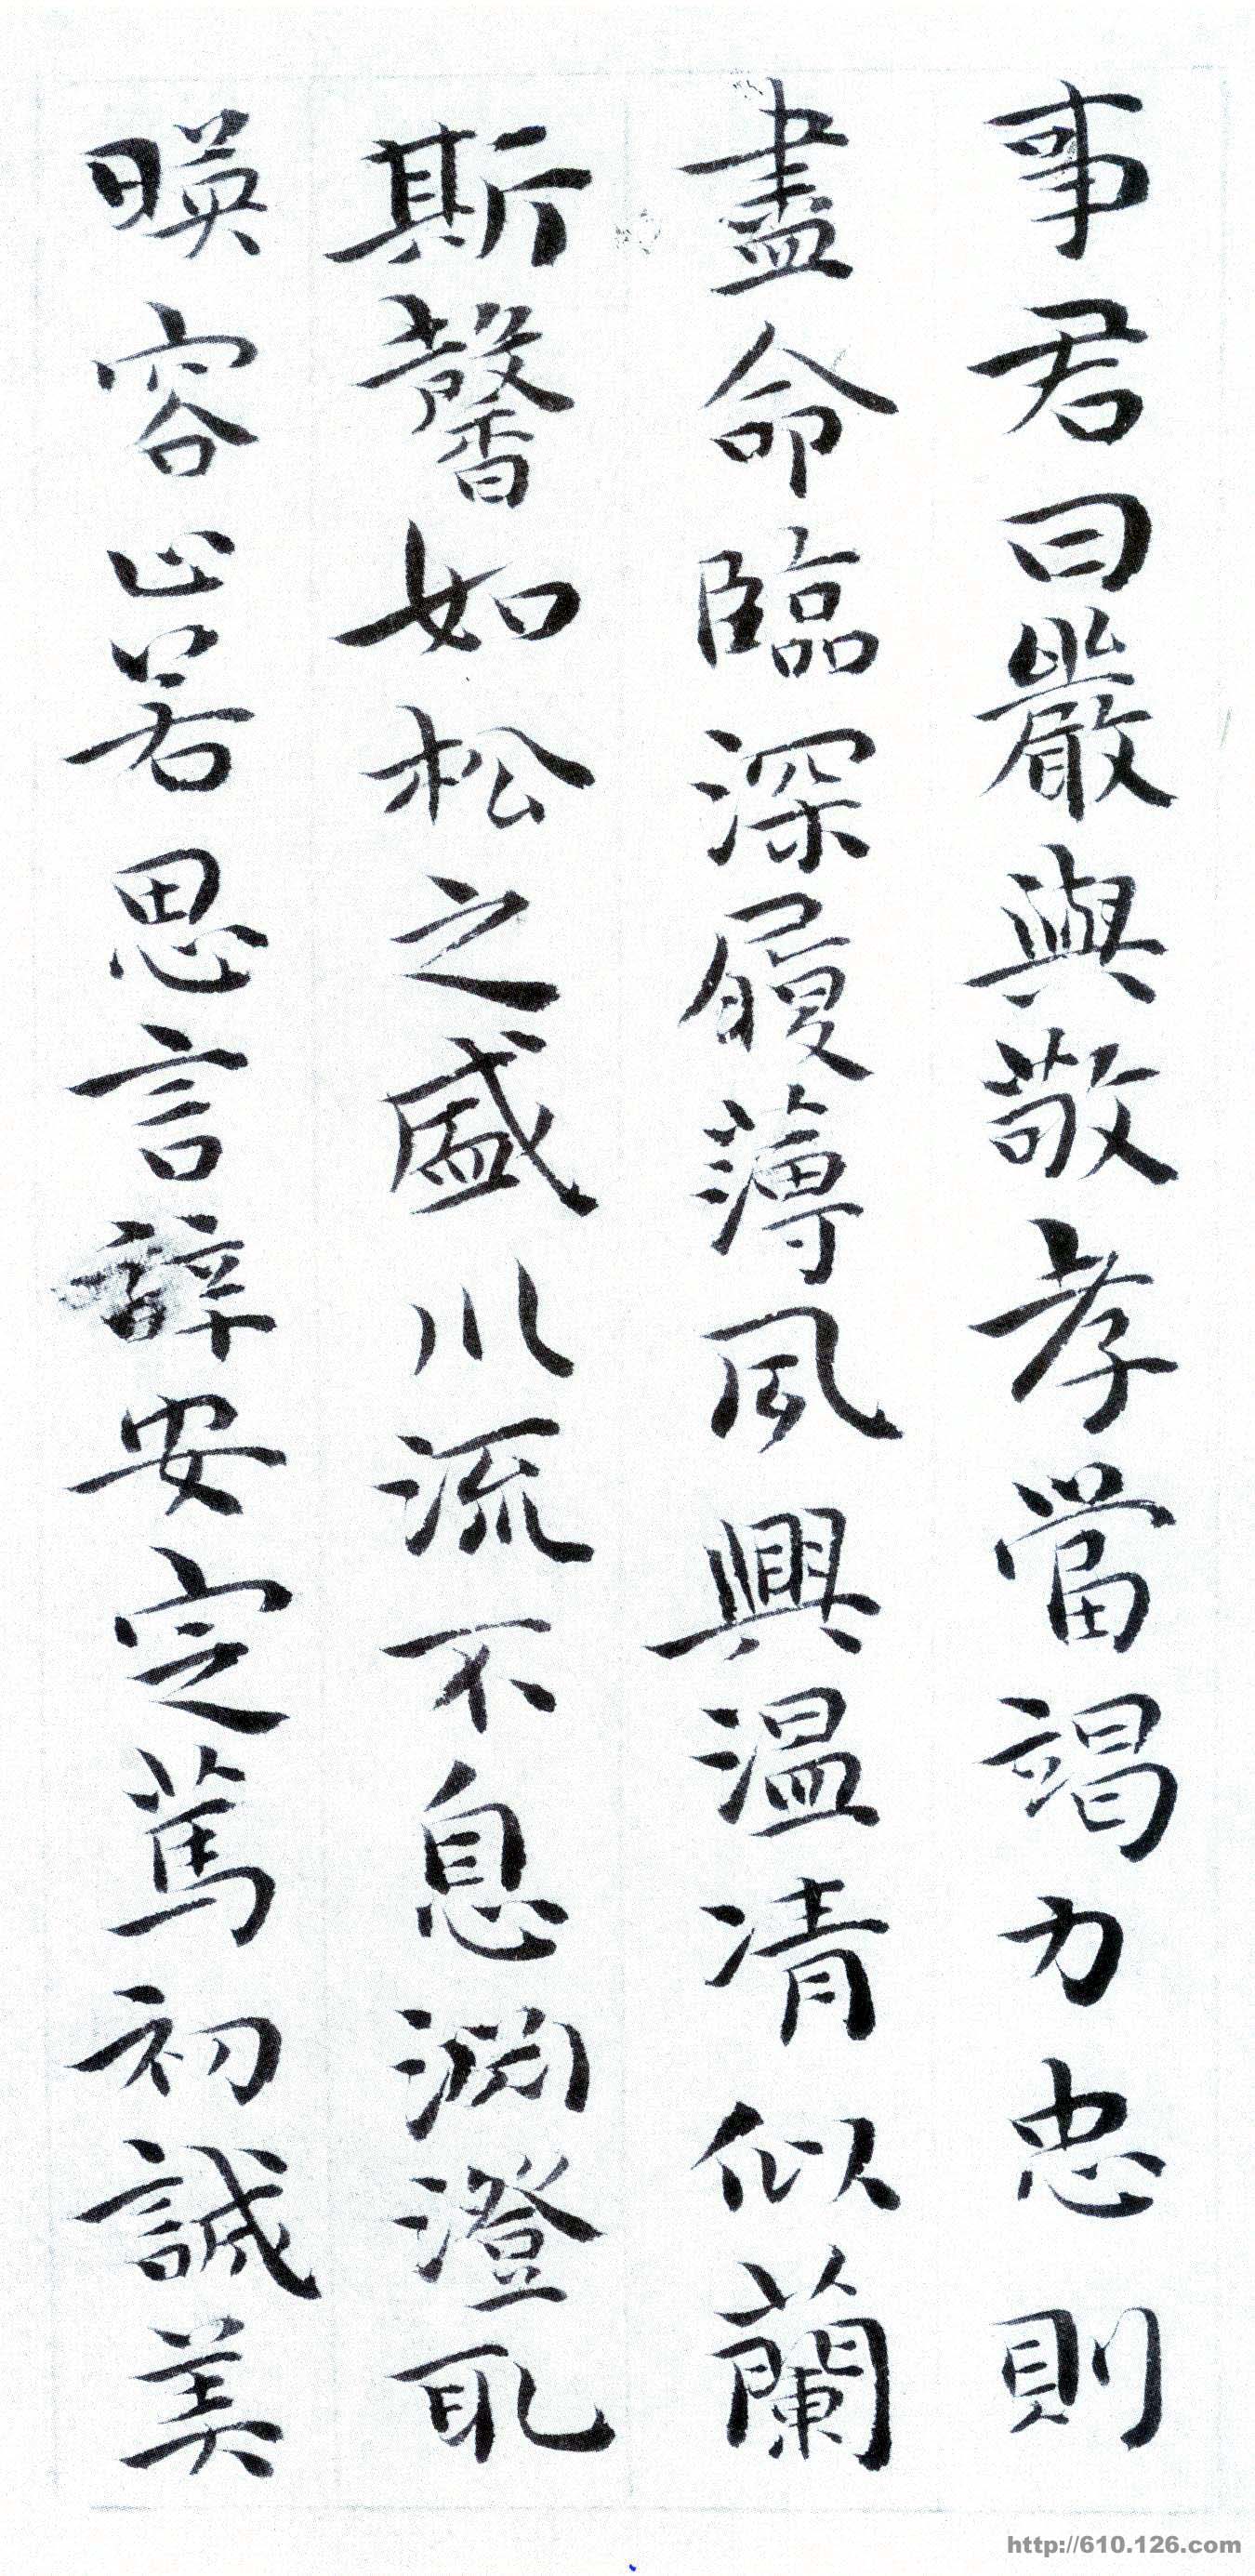 事君曰嚴與敬孝當竭力忠則
盡命臨深履薄夙興温凊似蘭
斯馨如松之盛川流不息淵澄取
暎容止若思言辭安定篤初誠美
http://610.126.com